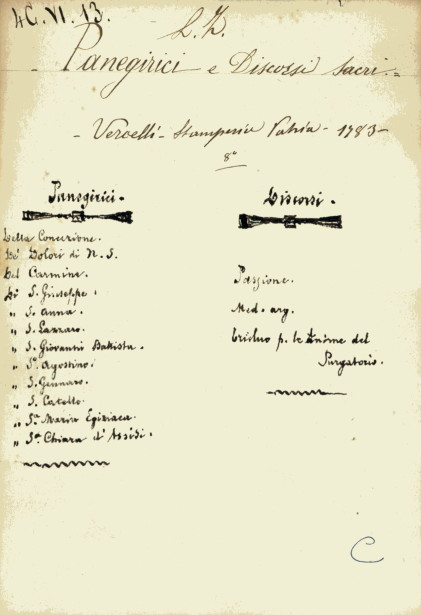 4C. VI. 13.
L. Z.
Panegirici e Discorsi Sacri.=
- Vercelli - Stamperia Patria - 1783-
8º
Panegirici.
Della Concezione.
De' Dolori di N. S.
Del Carmine.
Di S. Giuseppe.
" S. Anna.
" S. Lazzaro.
" S. Giovanni Battista.
" Sº. Agostino.
" S. Gennaro.
" S. Catello.
" Sª. Maria Egiziaca.
" Sª. Chiara d'Assisi.
Discorsi.
Passione.
Med. arg.
Triduo p. le Anime del
Purgatorio.
C